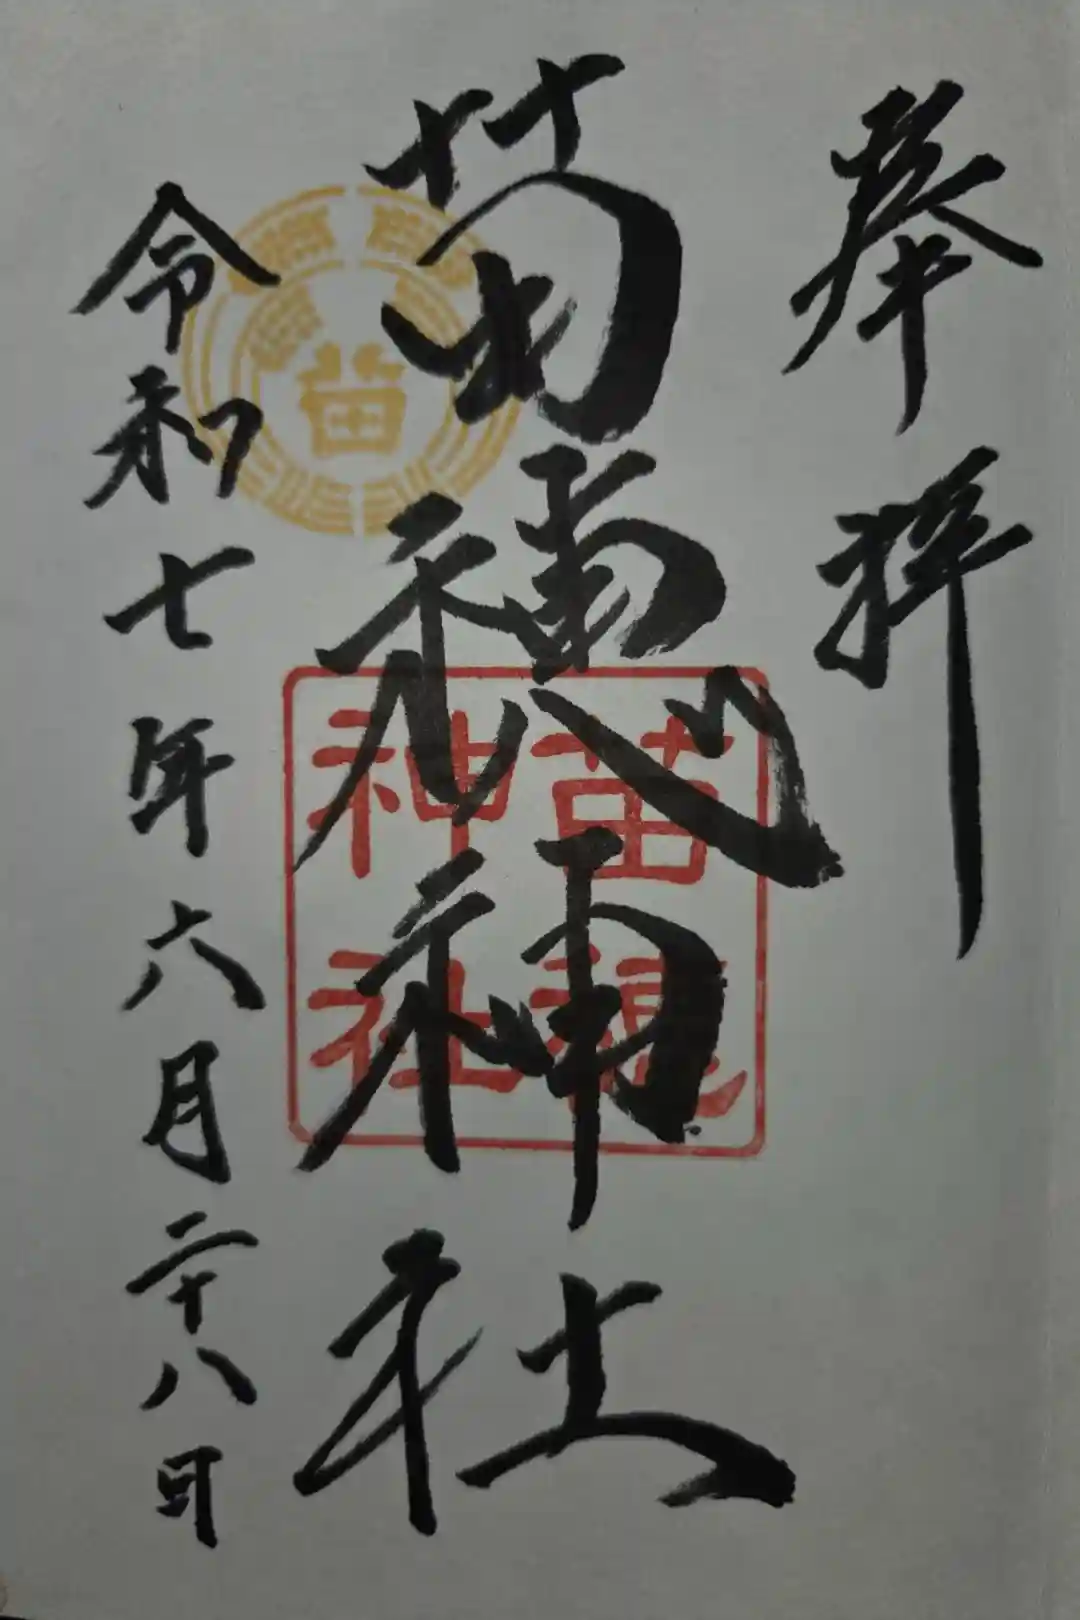 奉拝
苗穂神社
令和七年六月二十八日
苗
苗穂
神社